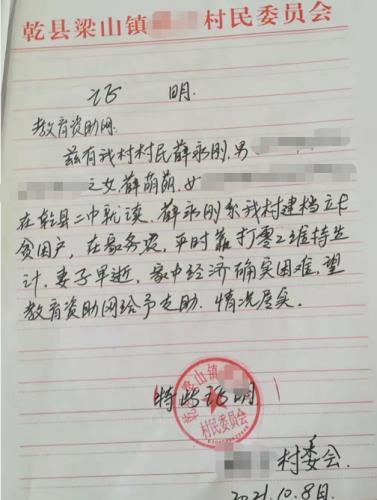 乾县梁山镇 村民委员会
证 明
教育资助网:
兹有我村村民薛永刚,男
之女薛萌萌,女
在乾县二中就读。薛永刚系我村建档立卡
贫困户,在家务农,平时靠打零工维持生
计,妻子早逝,家中经济确实困难,望
教育资助网给予支助。情况属实。
特此证明!
乾县梁山镇
村民委员会
村委会
2021.10.8日